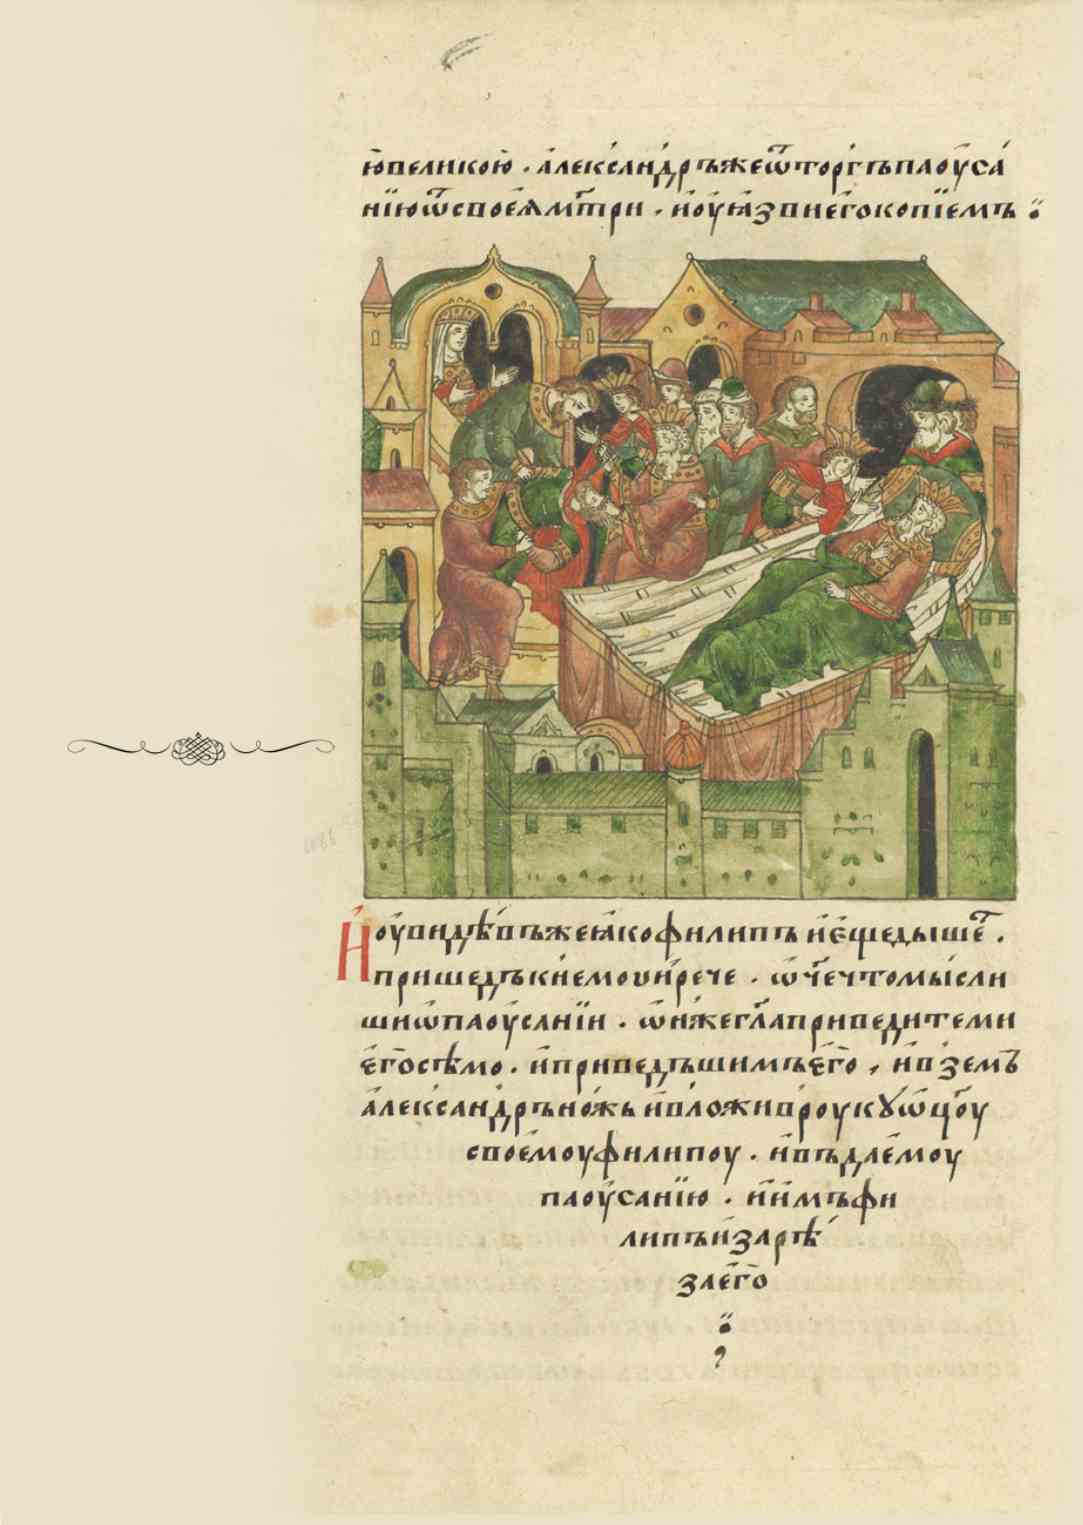 ю̀великою̀ . а҆леѯа́ндръжеѿто́ргъпаоу҆са́
ні́юѿсвоеѧ̀мт҃ри . и҆оу҆ꙗ҆́звиего̀копі́емъ ⁘
И҆оу҆ви́дѣ́въжеꙗ҆́кофили́ппъ и҆е҆щеды́ше .
прише́дъкне́моуи҆рече . ѿ҆ч҃ечтомы́сли
шиѡ҆паоу҆са́ні́и . ѡ҆нжегл҃априведи́теми
е҆го̀сѣ́мо . и҆приве́дъшимъе҆го̀ , и҆взе́мъ
а҆леѯа́ндръно́жь и҆вложи́вроукꙋѿц҃оу
своемоуфили́поу . и҆въдае҆моу
паоу҆са́ні́ю . и҆и҆мъфи
липъи҆зарѣ́
зае҆го̀